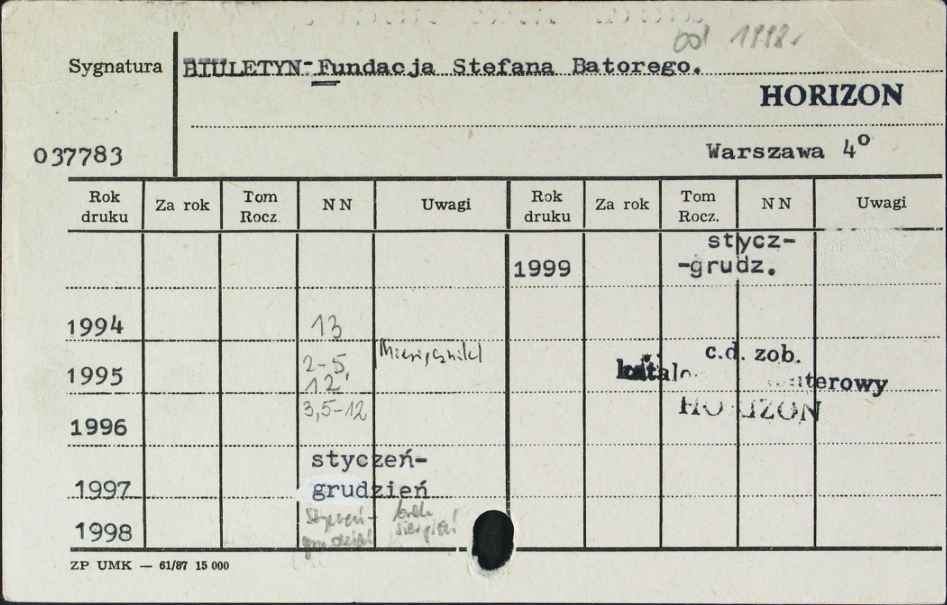 od 1998r
Sygnatura BIULETYN-Fundacja Stefana Batorego.
HORIZON
037783 Warszawa 4º
Rok druku Za rok Tom Rocz. NN Uwagi Rok druku Za rok Tom Rocz. NN Uwagi
1999 stycz-
-grudz.
1994 13
1995 2-5, 12 Miesięcznik
c.d. zob.
1996 3,5-12
HORIZON
1997 styczeń-
grudzień
1998 styczeń- brak
grudzień sierpień
ZP UMK — 61/87 15 000